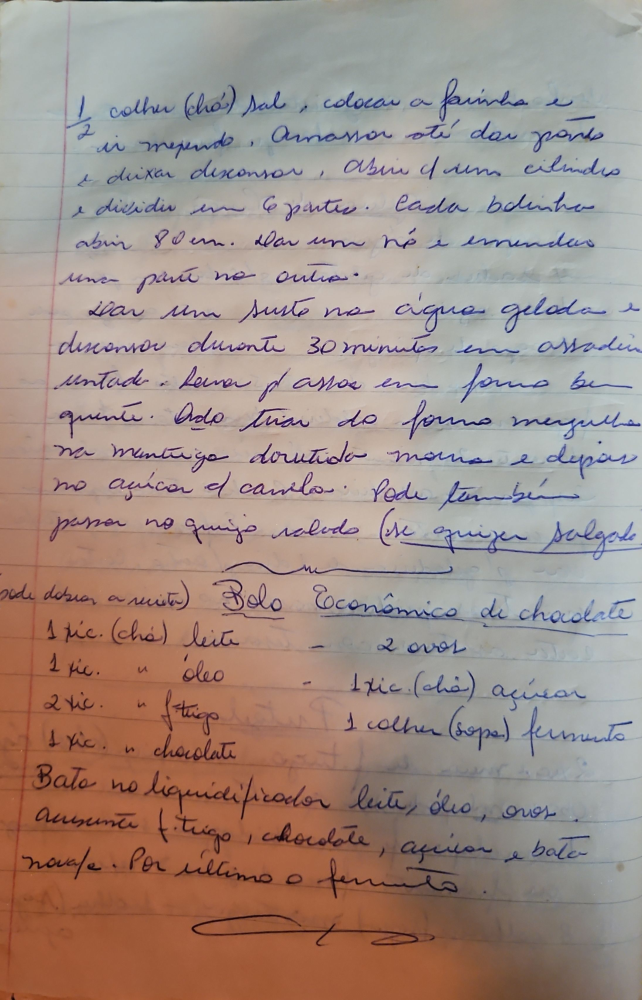 1/2 colher (chá) sal, colocar a farinha e
ir mexendo. Amassar até dar ponto
e deixar descansar, abrir c/ um cilindro
e dividir em 6 partes. Cada bolinha
abrir 80 cm. Dar um nó e emendar
uma parte na outra.
Dar um susto na água gelada e
descansar durante 30 minutos em assadeir
untada. Levar p/ assar em forno bem
quente. Ao tirar do forno mergulha
na manteiga derretida morna e depois
no açúcar c/ canela. Pode também
passar no queijo ralado (se quizer salgado
pode dobrar a receita) Bolo Econômico de chocolate
1 xic. (chá) leite - 2 ovos
1 xic. " óleo - 1 xic. (chá) açúcar
2 xic. " f. trigo 1 colher (sopa) fermento
1 xic. " chocolate
Bata no liquidificador leite, óleo, ovos.
acrescente f. trigo, chocolate, açúcar e bata
nova/e. Por último o fermento.